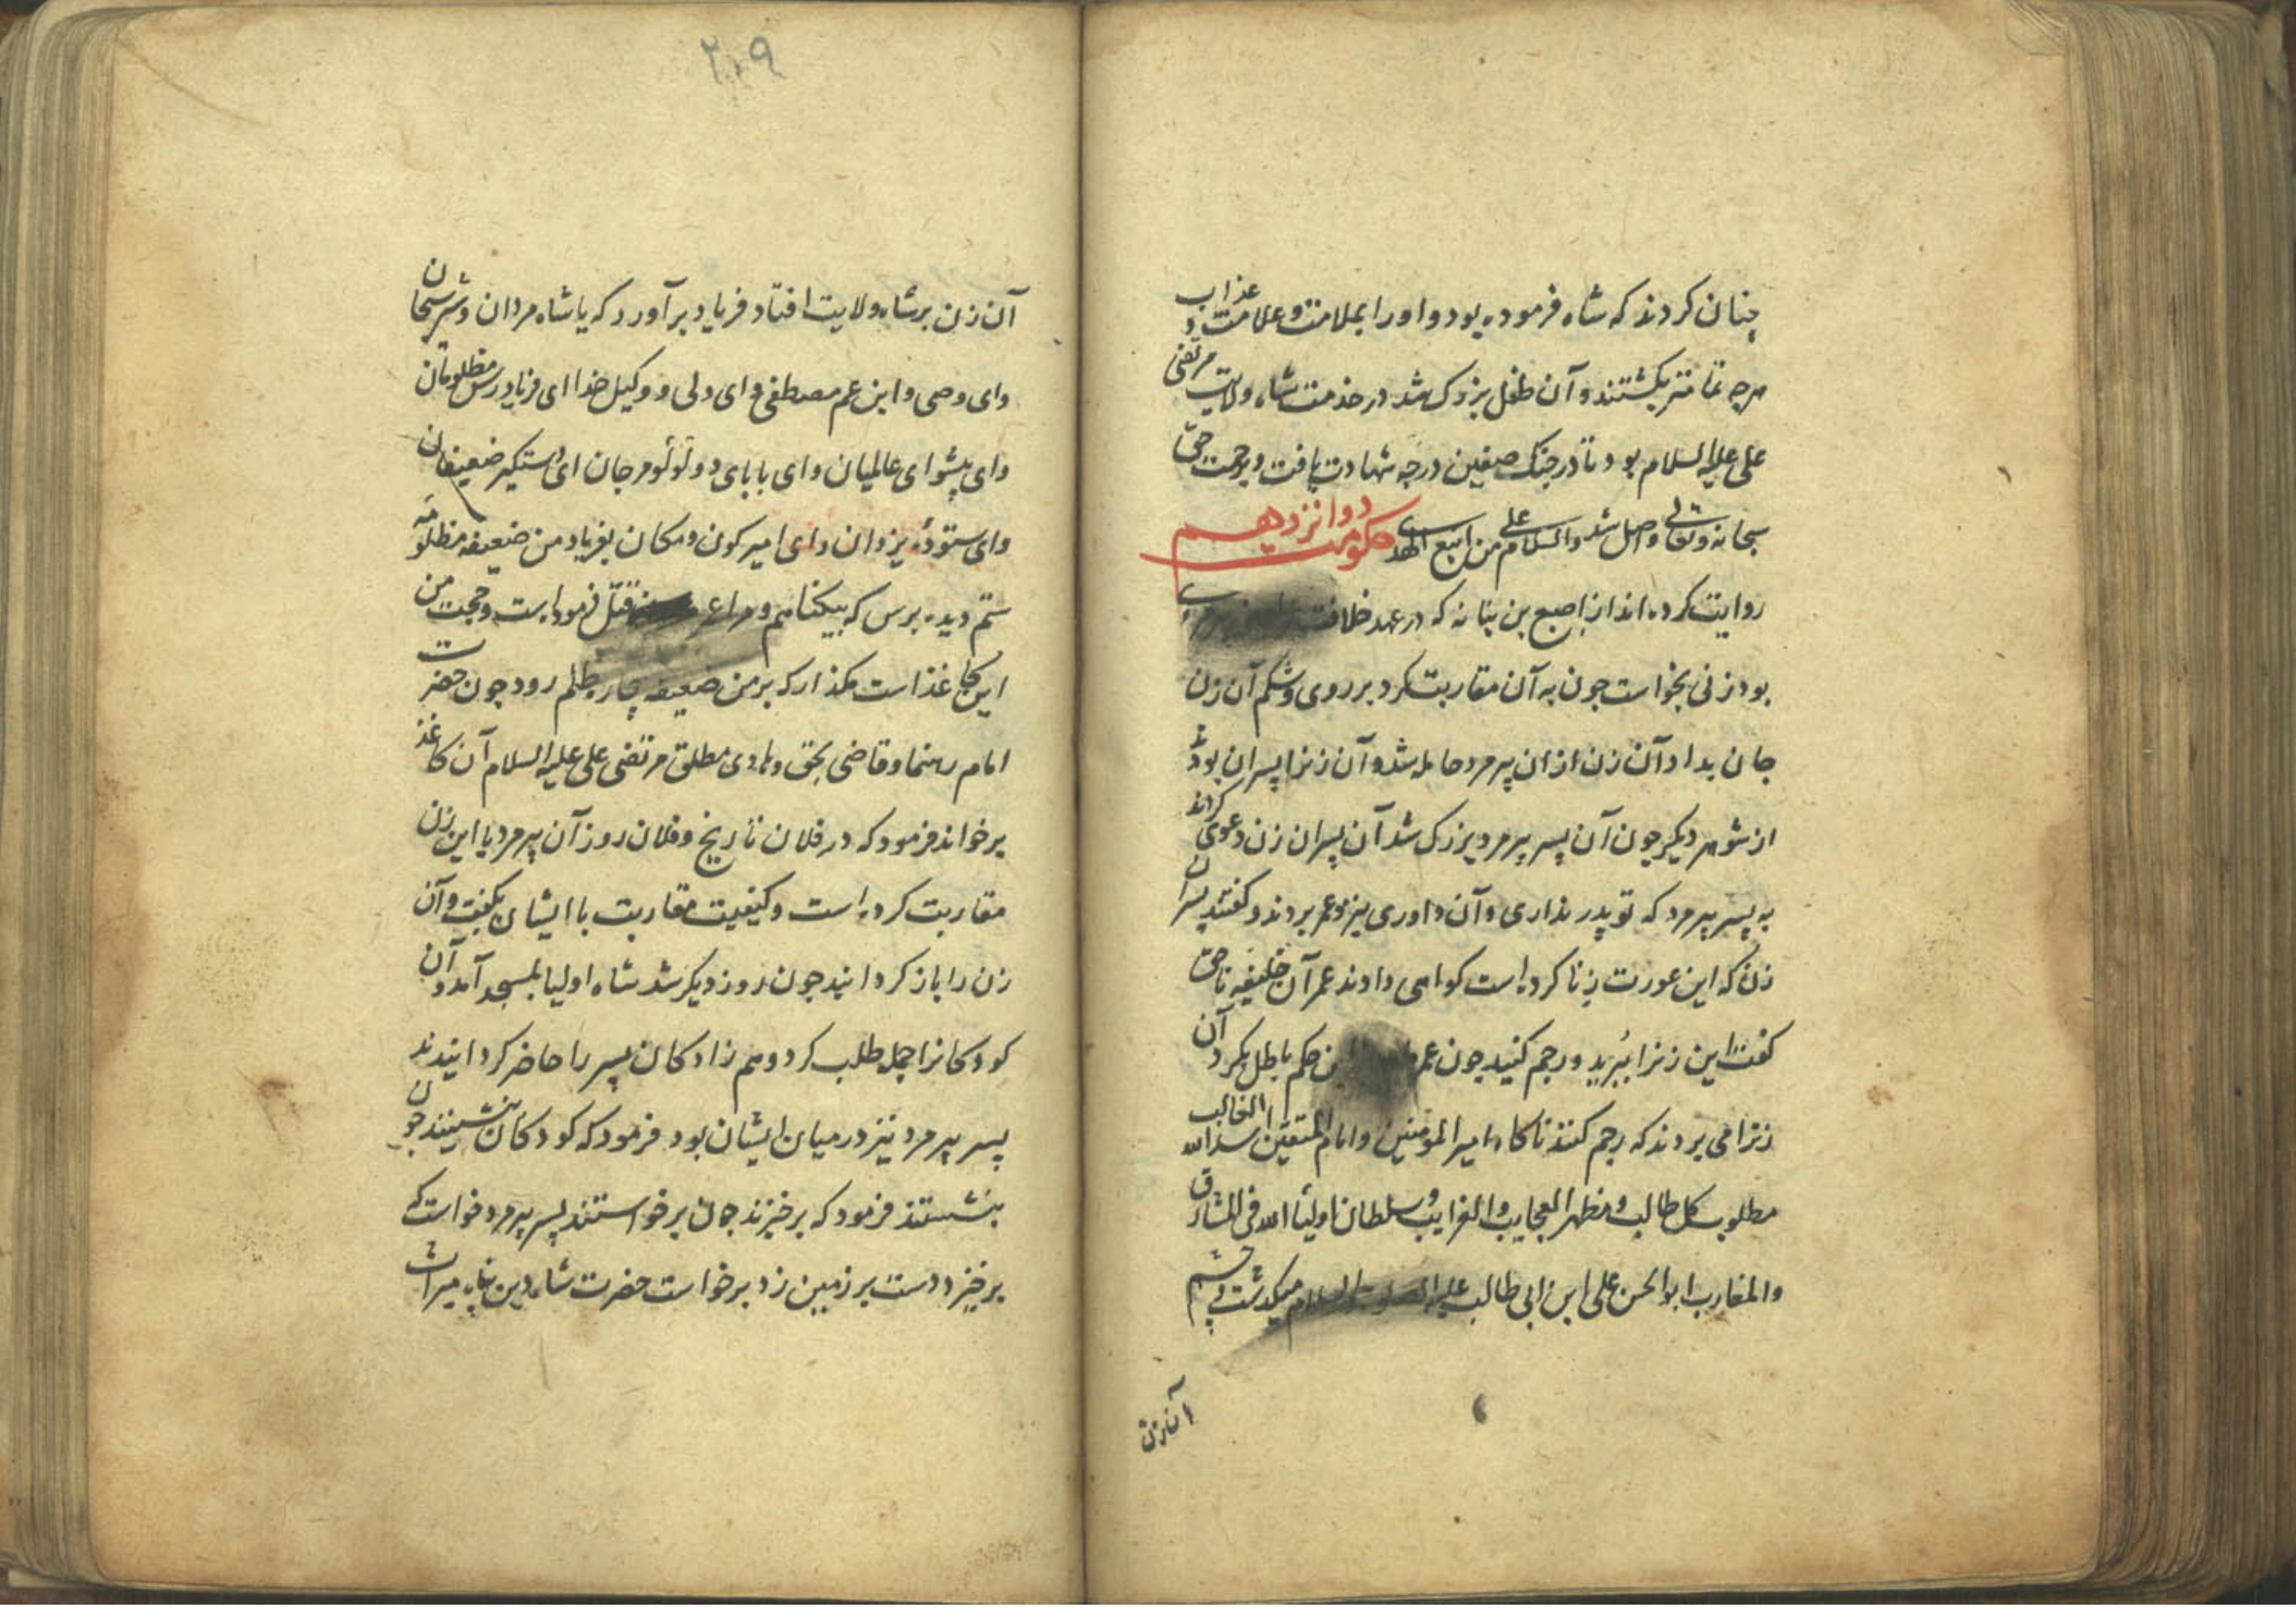 چنان کردند که شاه فرموده بود و او را بملامت و علامت و عذاب
هرچه تمامتر بکشتند و آن طفل بزرک شد در خدمت شاه ولایت مرتضی
علی علیه السلام بود تا در جنک صفین درجه شهادت یافت و برحمت حق
سبحانه وتعالی واصل شد والسلام علی من اتبع الهدی حکومت دوانزدهم
روایت کرده اند از اصبع بن بنانه که در عهد خلافت
بود زنی بخواست چون به آن مقاربت کرد بر روی و شکم آن زن
جان بداد آن زن از ان پیرمرد حامله شد و آن زنرا پسران بودند
از شوهر دیکر چون آن پسر پیرمرد بزرک شد آن پسران زن دعوی کردند
به پسر پیرمرد که تو پدر نداری و آن داوری بنزد عمر بردند و کفتند پسران
زن که این عورت زنا کرده است کواهی دادند عمر آن خلیفه ناحق
کفت این زنرا ببرید و رجم کنید چون عمر این حکم باطل بکرد آن
زنرا می بردند که رجم کنند ناکاه امیر المؤمنین و امام المتقین اسد الله الغالب
مطلوب کل طالب و مظهر العجایب و الغرایب و سلطان اولیأ الله فی المشارق
والمغارب ابو الحسن علی ابن ابی طالب علیه السلام میکذشت و چشم
آن زن
۲۰۹
آن زن بر شاه ولایت افتاد فریاد برآورد که یا شاه مردان و شیر سبحان
وای وصی و ابن عم مصطفی وای ولی و وکیل خدا ای فریادرس مظلومان
وای پیشوای عالمیان وای بابای دو لؤلؤ مرجان ای دستکیر ضعیفان
وای ستودهٔ یزدان وای امیر کون و مکان بفریاد من ضعیفه مظلومه
ستم دیده برس که بیکناهم و مرا عمر قتل فرموده است و حجت من
این کاغذ است مکذار که بر من ضعیفه بیچاره ظلم رود چون حضرت
امام رهنما و قاضی بحق و هادی مطلق مرتضی علی علیه السلام آن کاغذ
برخواند فرمود که در فلان تاریخ و فلان روز آن پیرمرد با این زن
مقاربت کرده است و کیفیت مقاربت با ایشان بکفت و آن
زن را باز کردانید چون روز دیکر شد شاه اولیا بمسجد آمد و آن
کودکانرا جمله طلب کرد و هم زادکان پسر را حاضر کردانیدند
پسر پیرمرد نیز در میان ایشان بود فرمود که کودکان بنشینند چون
بنشستند فرمود که برخیزند چون برخواستند پسر پیرمرد خواست که
برخیزد دست بر زمین زد برخواست حضرت شاه دین پناه میراث